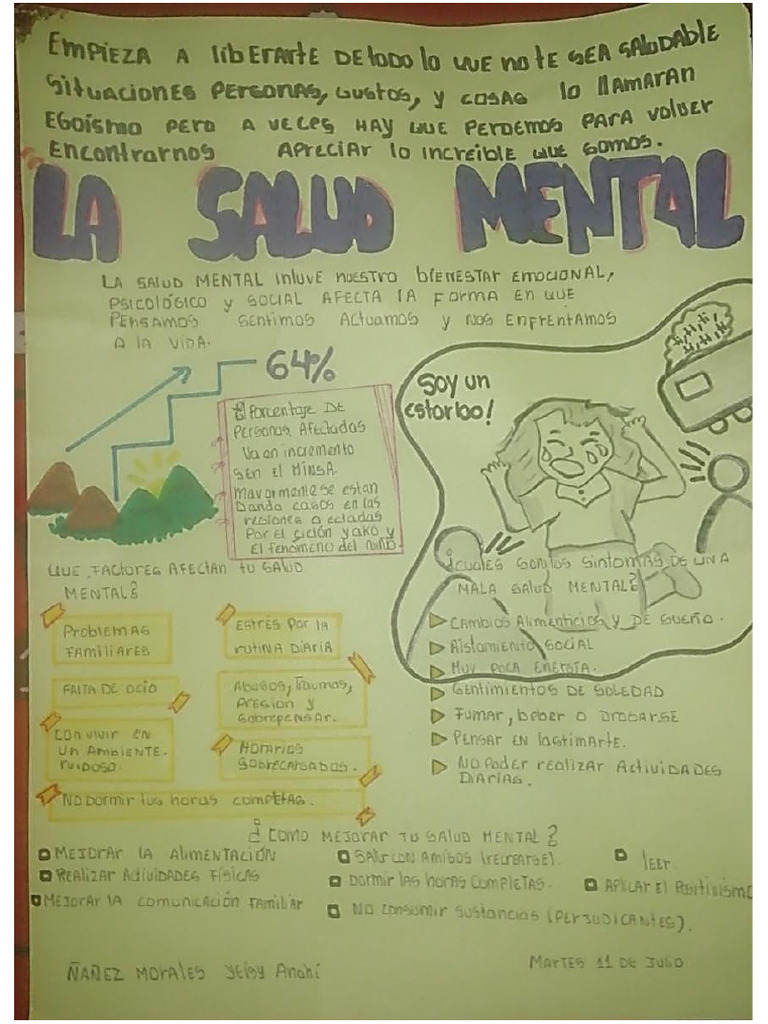 EMPIEZA A liberarte DE todo lo que no te SEA SALUDABLE
SITUACIONES PERSONAS, GUSTOS, Y COSAS lo llAMARAN
EGOÍSMO PERO A VECES HAY QUE PERDEMOS PARA VOLVER
ENCONTRARNOS APRECIAR lo INCREIBLE QUE SOMOS.
LA SALUD MENTAL
LA SALUD MENTAL INLUVE NUESTRO bIENESTAR EMOCIONAL,
PSICOLÓGICO y SOCIAL AFECTA lA FORMA EN QUE
PENSAMOS SENTIMOS ACTUAMOS y NOS ENFRENTAMOS
A lA VIDA.
64%
El Porcentaje DE
Personas Afectadas
Va en incremento
en el MINSA.
Mayormente se estan
Dando casos en las
regiones
Por el ciclón yako y
El fenómeno del NIÑO.
Soy un
estorbo!
QUE FACTORES AFECTAN TU SALUD
MENTAL?
PROBLEMAS
FAMILIARES
ESTRÉS POR LA
RUTINA DIARIA
FALTA DE OCIO
Abusos, Traumas,
PRESION Y
SOBREPENSAR.
CONVIVIR EN
UN AMBIENTE
RUIDOSO.
HORARIOS
SOBRECARGADOS.
NO DORMIR TUS HORAS COMPETAS.
¿CUALES SON LOS SINTOMAS DE UNA
MALA SALUD MENTAL?
CAMBIOS ALIMENTICIOS Y DE SUEÑO.
AISLAMIENTO SOCIAL
MUY POCA ENERGÍA.
SENTIMIENTOS DE SOLEDAD
FUMAR, bEbER O DROGARSE
PENSAR EN lastimarte.
NO PODER REALIZAR ACTIVIDADES
DIARIAS.
¿COMO MEJORAR TU SALUD MENTAL?
MEJORAR LA ALIMENTACIÓN
SALIR CON AMIGOS (RECREARSE).
LEER.
REALIZAR ACTIVIDADES FÍSICAS
DORMIR LAS HORAS COMPLETAS.
APLICAR El POSITIVISMO
MEJORAR LA COMUNICACIÓN FAMILIAR
NO CONSUMIR SUSTANCIAS (PERJUDICANTES).
ÑAÑEZ MORALES YEISY Anahí
MARTES 11 DE JULIO